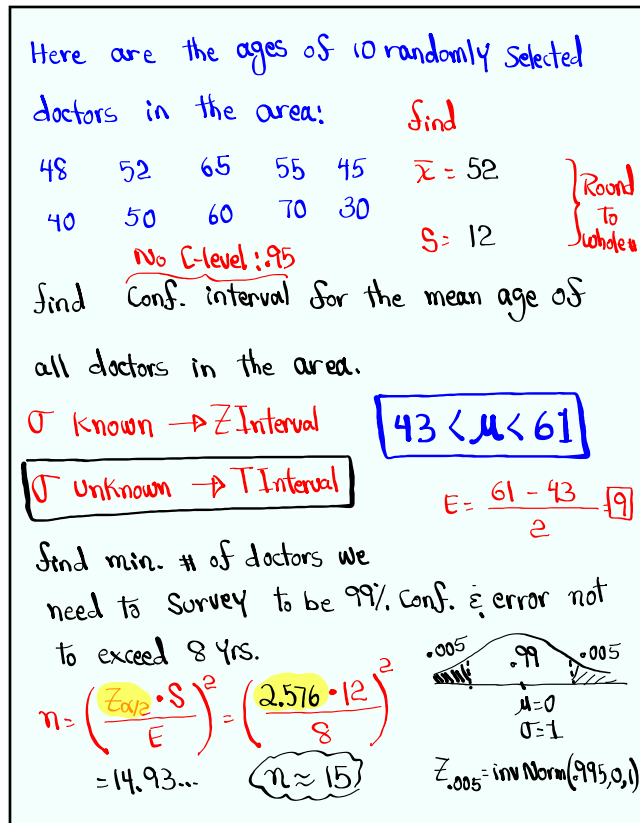 Here are the ages of 10 randomly selected
doctors in the area: find
48 52 65 55 45 x̄ = 52
40 50 60 70 30 S = 12
Round To whole #
No C-level: .95
find Conf. interval for the mean age of
all doctors in the area.
σ Known → Z Interval
43 < μ < 61
σ unknown → T Interval
E = (61 - 43)/2 = 9
find min. # of doctors we
need to survey to be 99% Conf. & error not
to exceed 8 yrs.
.005 .99 .005
n = (Zα/2 · S / E)² = (2.576 · 12 / 8)²
μ=0
σ=1
= 14.93... n ≈ 15
Z.005 = invNorm(.995,0,1)